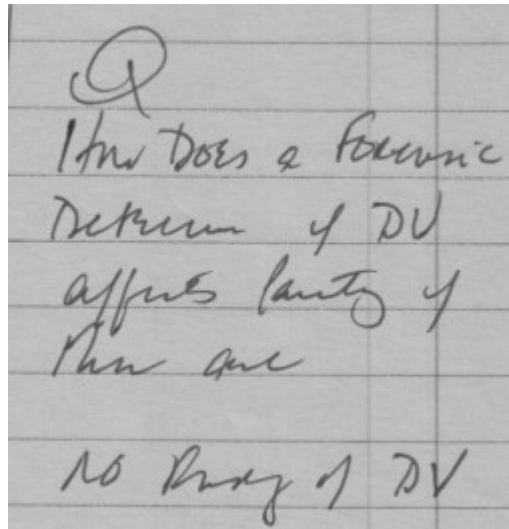 Q
How Does a Forensic
Determine if DV
affects Parity if
there are
NO Finding of DV